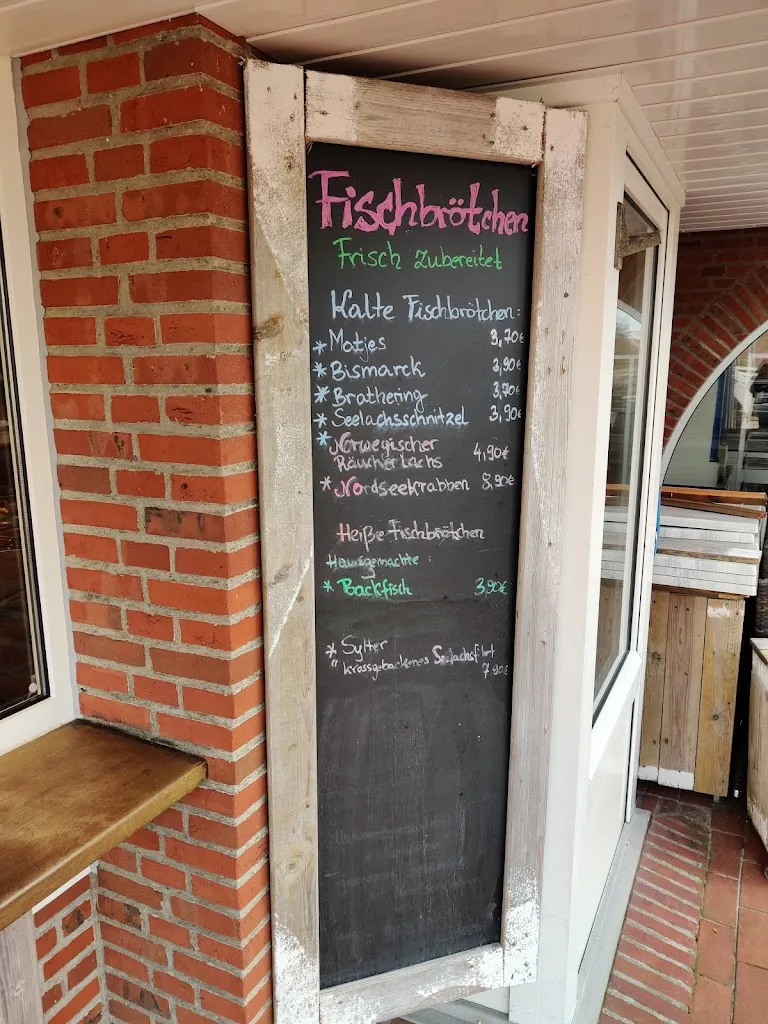 Fischbrötchen
Frisch zubereitet
Kalte Fischbrötchen:
* Matjes 3,70€
* Bismarck 3,90€
* Brathering 3,70€
* Seelachsschnitzel 3,90€
* Norwegischer
Räucherlachs 4,90€
* Nordseekrabben 8,90€
Heiße Fischbrötchen
Hausgemachte:
* Backfisch 3,90€
* Sylter
"krossgebackenes Seelachsfilet
7,90€